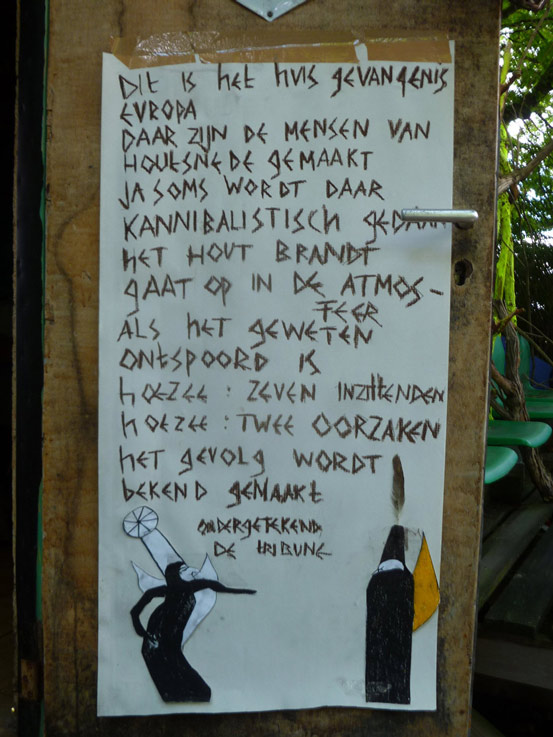 Dit is het huis gevangenis
EUROPA
DAAR ZIJN DE MENSEN VAN
HOUTSNEDE GEMAAKT
JA SOMS WORDT DAAR
KANNIBALISTISCH GEDAAN
HET HOUT BRANDT
GAAT OP IN DE ATMOS-
FEER
ALS HET GEWETEN
ONTSPOORD IS
HOEZEE : ZEVEN INZITTENDEN
HOEZEE : TWEE OORZAKEN
HET GEVOLG WORDT
BEKEND GEMAAKT
ONDERGETEKEND
DE TRIBUNE